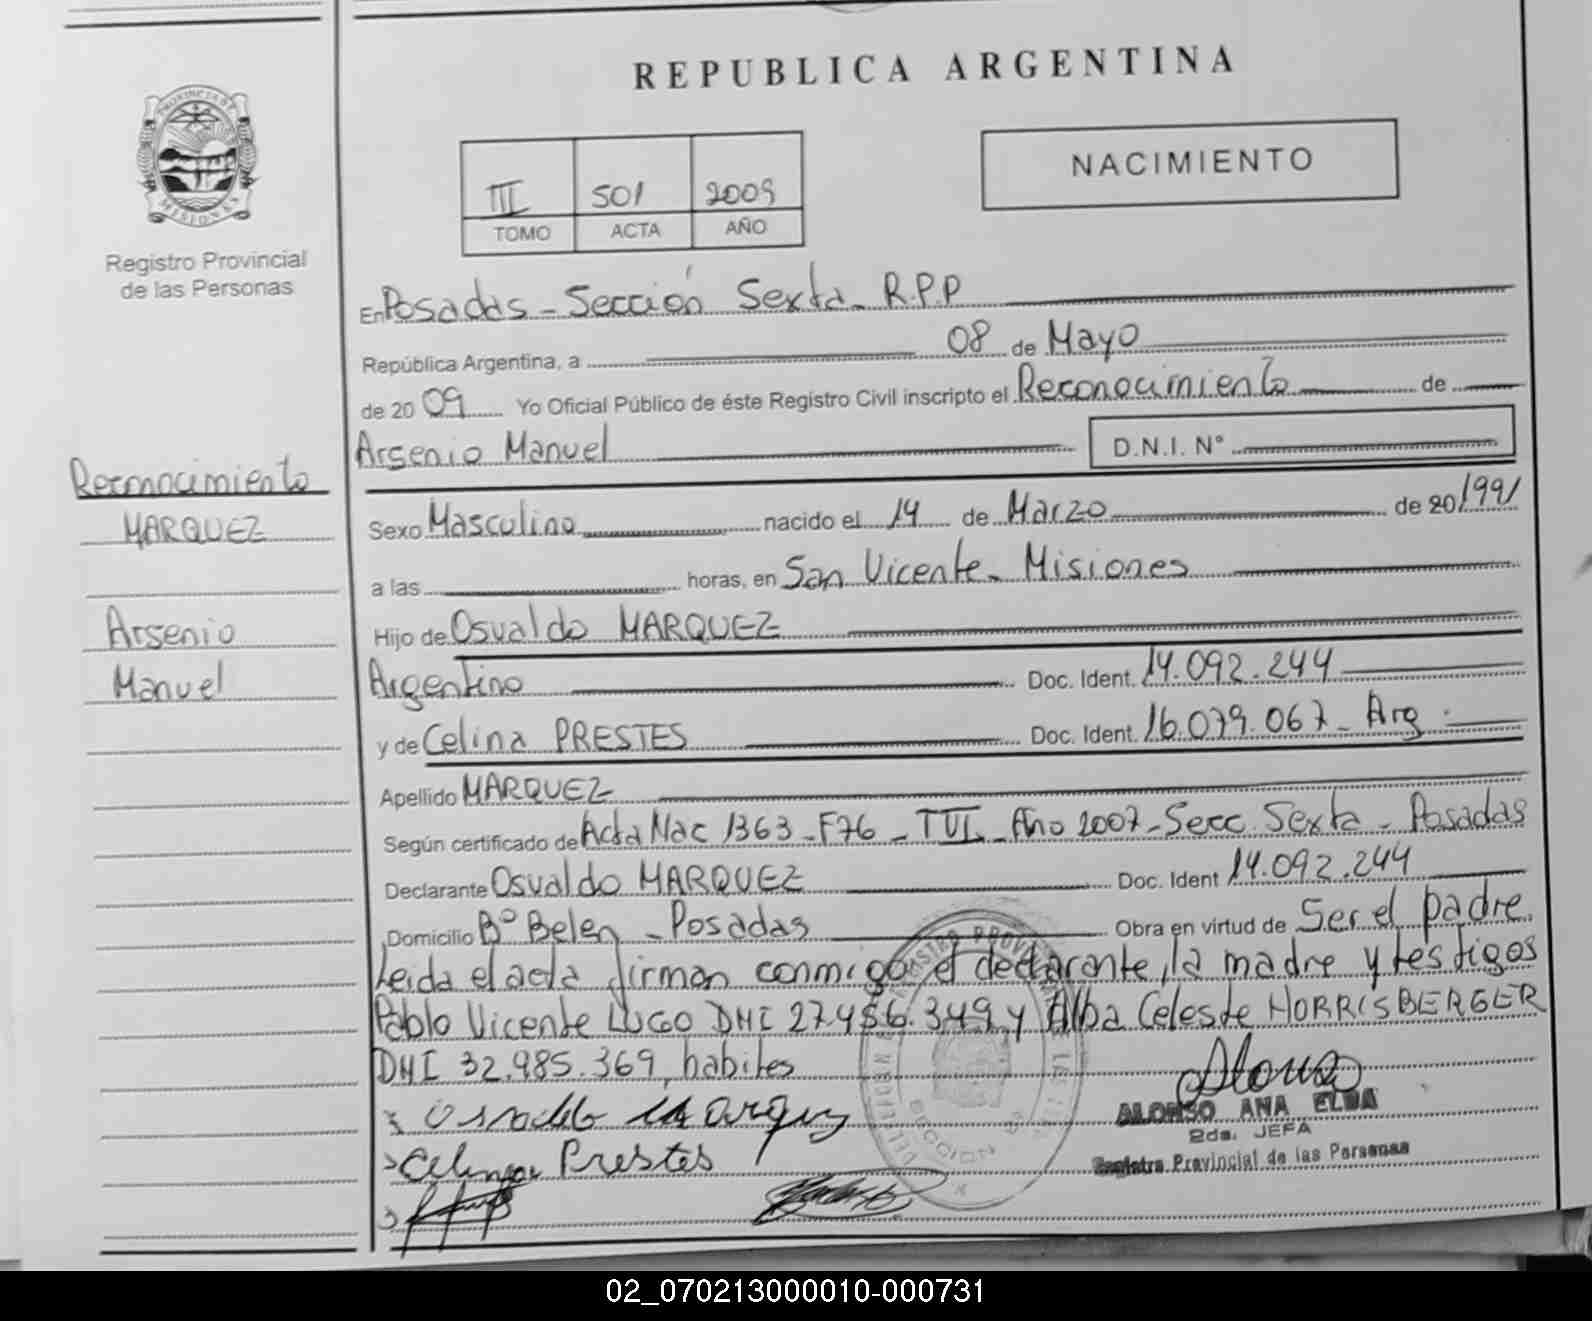 REPUBLICA ARGENTINA
PROVINCIA DE
MISIONES
Registro Provincial
de las Personas
III 501 2009
TOMO ACTA AÑO
NACIMIENTO
En Posadas - Sección Sexta - R.P.P
República Argentina, a 08 de Mayo
de 20 09 Yo Oficial Público de éste Registro Civil inscripto el Reconocimiento de
Arsenio Manuel D.N.I. N°
Reconocimiento
MARQUEZ
Arsenio
Manuel
Sexo Masculino nacido el 14 de Marzo de 20/1991
a las horas, en San Vicente - Misiones
Hijo de Osvaldo MARQUEZ
Argentino Doc. Ident. 14.092.244
y de Celina PRESTES Doc. Ident. 16.079.067 - Arg.
Apellido MARQUEZ
Según certificado de Acta Nac 1363 - F76 - TVI - Año 2007 - Secc. Sexta - Posadas
Declarante Osvaldo MARQUEZ Doc. Ident 14.092.244
Domicilio B° Belen - Posadas Obra en virtud de Ser el padre.
Leida el acta firman conmigo el declarante, la madre y testigos
Pablo Vicente LUGO DNI 27.456.349 y Alba Celeste HORRISBERGER
DNI 32.985.369, habiles
Osvaldo Marquez
Celina Prestes
Alonso
ALONSO ANA ELBA
2da. JEFA
Registro Provincial de las Personas
02_070213000010-000731